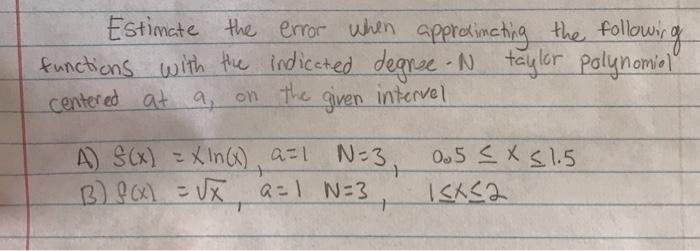 Estimate the error when approximating the following
functions with the indicated degree-N taylor polynomial
centered at a, on the given interval
A) f(x) = xln(x), a=1 N=3, 0.5 ≤ x ≤ 1.5
B) f(x) = √x, a=1 N=3, 1≤x≤2